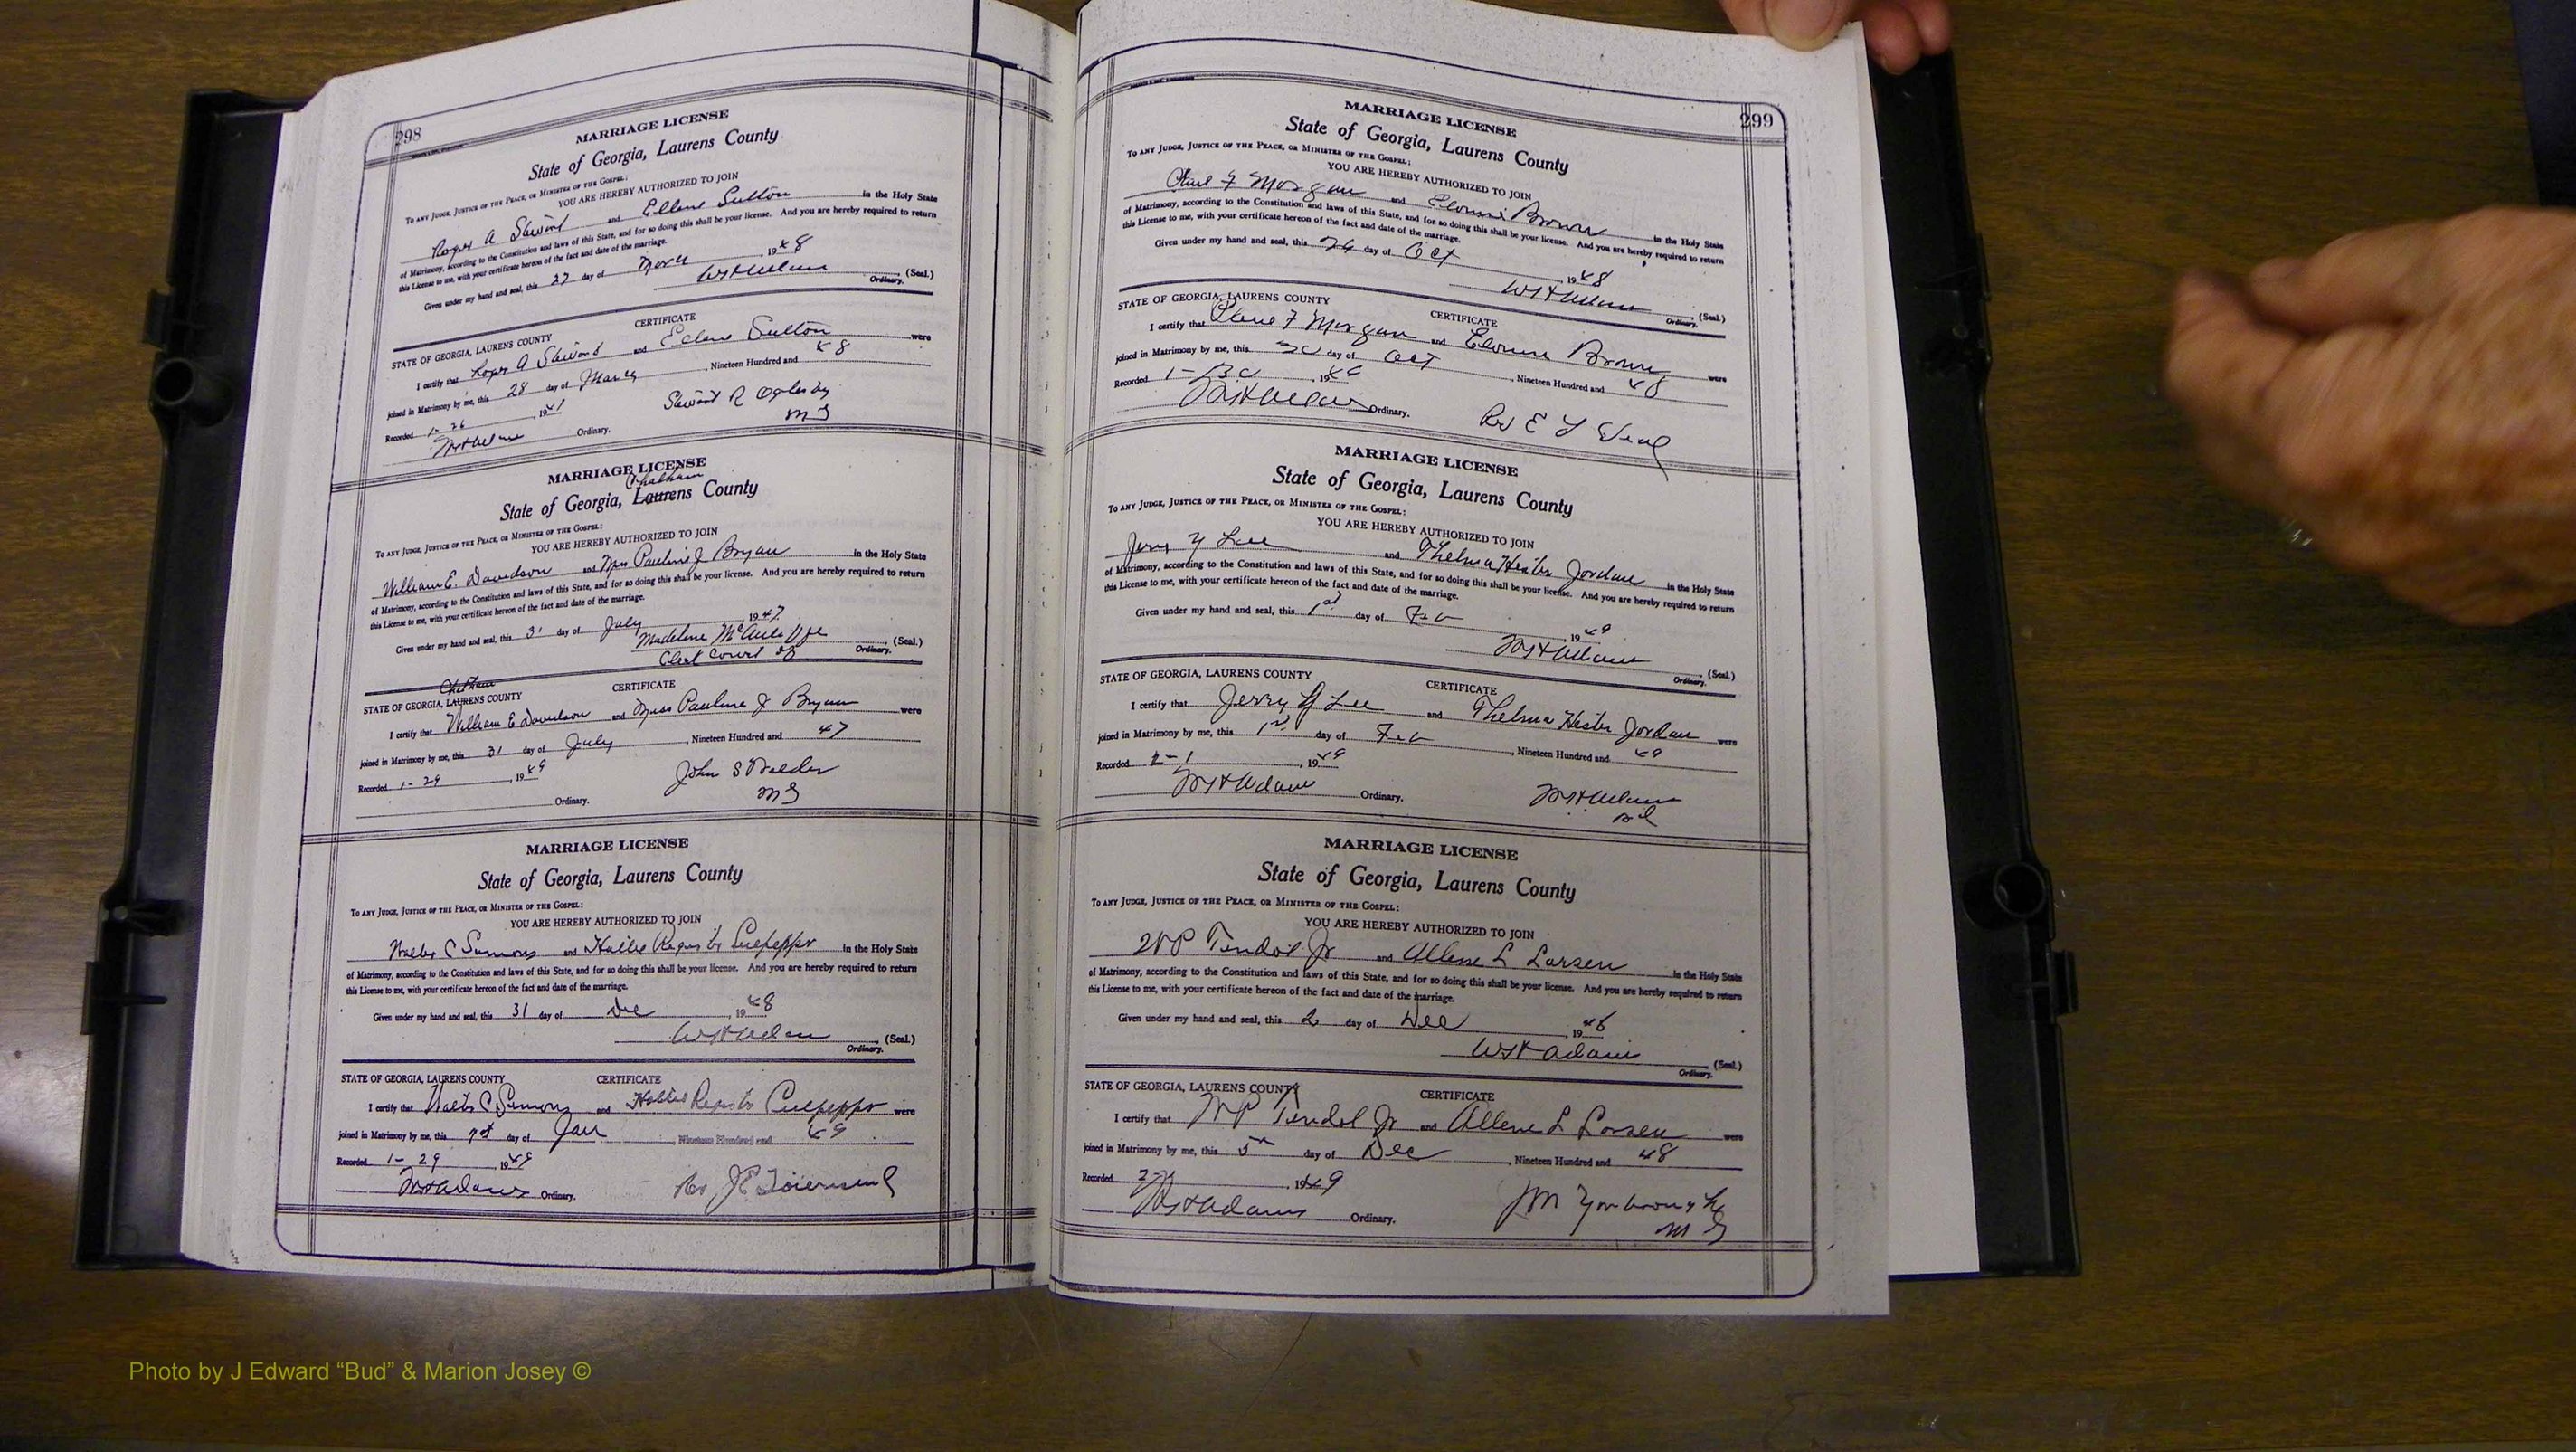 298
MARRIAGE LICENSE
State of Georgia, Laurens County
TO ANY JUDGE, JUSTICE OF THE PEACE, OR MINISTER OF THE GOSPEL:
YOU ARE HEREBY AUTHORIZED TO JOIN
Roger A and Sutton in the Holy State
of Matrimony, according to the Constitution and laws of this State, and for so doing this shall be your license. And you are hereby required to return
this License to me, with your certificate hereon of the fact and date of the marriage.
Given under my hand and seal, this 27 day of , 1948
(Seal.)
Ordinary.
STATE OF GEORGIA, LAURENS COUNTY CERTIFICATE
I certify that Roger A and Sutton were
joined in Matrimony by me, this 28 day of March , Nineteen Hundred and 48
Recorded 1-26 , 19
Ordinary.
MARRIAGE LICENSE
Chatham
State of Georgia, Laurens County
TO ANY JUDGE, JUSTICE OF THE PEACE, OR MINISTER OF THE GOSPEL:
YOU ARE HEREBY AUTHORIZED TO JOIN
William E. Davidson and Mrs Pauline J Bryan in the Holy State
of Matrimony, according to the Constitution and laws of this State, and for so doing this shall be your license. And you are hereby required to return
this License to me, with your certificate hereon of the fact and date of the marriage.
Given under my hand and seal, this 31 day of July , 1947
Madeline (Seal.)
Clerk Court of Ordinary.
Chatham
STATE OF GEORGIA, LAURENS COUNTY CERTIFICATE
I certify that William E Davidson and Pauline J Bryan were
joined in Matrimony by me, this 31 day of July , Nineteen Hundred and 47
Recorded 1-29 , 1949
John S Wilder
MG
Ordinary.
MARRIAGE LICENSE
State of Georgia, Laurens County
TO ANY JUDGE, JUSTICE OF THE PEACE, OR MINISTER OF THE GOSPEL:
YOU ARE HEREBY AUTHORIZED TO JOIN
C and Hallie Culpepper in the Holy State
of Matrimony, according to the Constitution and laws of this State, and for so doing this shall be your license. And you are hereby required to return
this License to me, with your certificate hereon of the fact and date of the marriage.
Given under my hand and seal, this 31 day of Dec , 1948
(Seal.)
Ordinary.
STATE OF GEORGIA, LAURENS COUNTY CERTIFICATE
I certify that C and Hallie Culpepper were
joined in Matrimony by me, this day of Jan , Nineteen Hundred and 49
Recorded 1-29 , 1949
Adams Ordinary.
299
MARRIAGE LICENSE
State of Georgia, Laurens County
TO ANY JUDGE, JUSTICE OF THE PEACE, OR MINISTER OF THE GOSPEL:
YOU ARE HEREBY AUTHORIZED TO JOIN
F Morgan and Brown in the Holy State
of Matrimony, according to the Constitution and laws of this State, and for so doing this shall be your license. And you are hereby required to return
this License to me, with your certificate hereon of the fact and date of the marriage.
Given under my hand and seal, this day of Oct , 1948
(Seal.)
Ordinary.
STATE OF GEORGIA, LAURENS COUNTY CERTIFICATE
I certify that F Morgan and Brown were
joined in Matrimony by me, this day of Oct , Nineteen Hundred and 48
Recorded , 19
Ordinary.
Rev E
MARRIAGE LICENSE
State of Georgia, Laurens County
TO ANY JUDGE, JUSTICE OF THE PEACE, OR MINISTER OF THE GOSPEL:
YOU ARE HEREBY AUTHORIZED TO JOIN
Jerry Y Lee and Thelma Hester Jordan in the Holy State
of Matrimony, according to the Constitution and laws of this State, and for so doing this shall be your license. And you are hereby required to return
this License to me, with your certificate hereon of the fact and date of the marriage.
Given under my hand and seal, this 1st day of Feb , 1949
(Seal.)
Ordinary.
STATE OF GEORGIA, LAURENS COUNTY CERTIFICATE
I certify that Jerry Y Lee and Thelma Hester Jordan were
joined in Matrimony by me, this 1st day of Feb , Nineteen Hundred and 49
Recorded 2-1 , 1949
Ordinary.
MARRIAGE LICENSE
State of Georgia, Laurens County
TO ANY JUDGE, JUSTICE OF THE PEACE, OR MINISTER OF THE GOSPEL:
YOU ARE HEREBY AUTHORIZED TO JOIN
Jr and Allene L Larsen in the Holy State
of Matrimony, according to the Constitution and laws of this State, and for so doing this shall be your license. And you are hereby required to return
this License to me, with your certificate hereon of the fact and date of the marriage.
Given under my hand and seal, this 2 day of Dec , 19
Adams (Seal.)
Ordinary.
STATE OF GEORGIA, LAURENS COUNTY CERTIFICATE
I certify that Jr and Allene L Larsen were
joined in Matrimony by me, this 5th day of Dec , Nineteen Hundred and 48
Recorded 2-1 , 1949
Adams Ordinary.
JM Yorbrough
MG
Photo by J Edward “Bud” & Marion Josey ©